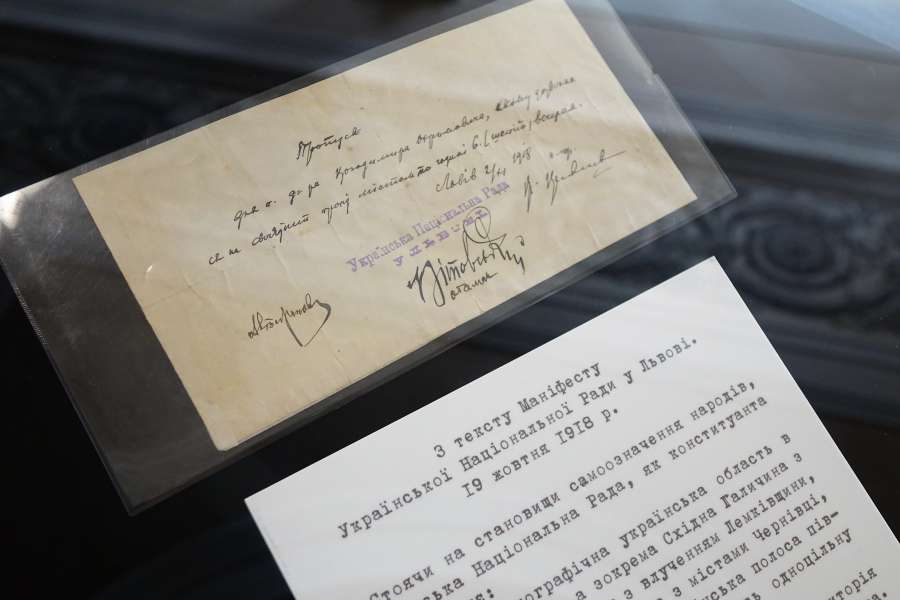 Пропуск
для п. др-ра Володимира Охримовича, якому дозволя
ся на свобідний прохід містом по годині 6. (шестій) вечером.
Львів 2/XI 1918
Українська Національна Рада
у Львові
Вітовський
отаман
З тексту Маніфесту
Української Національної Ради у Львові.
19 жовтня 1918 р.
Стоячи на становищи самоозначення народів,
ська Національна Рада, як конституанта
ографічна українська область в
а зокрема Східна Галичина з
з влученням Лемківщини,
з містами Чернівці,
нська полоса пів-
одноцільну
иторія